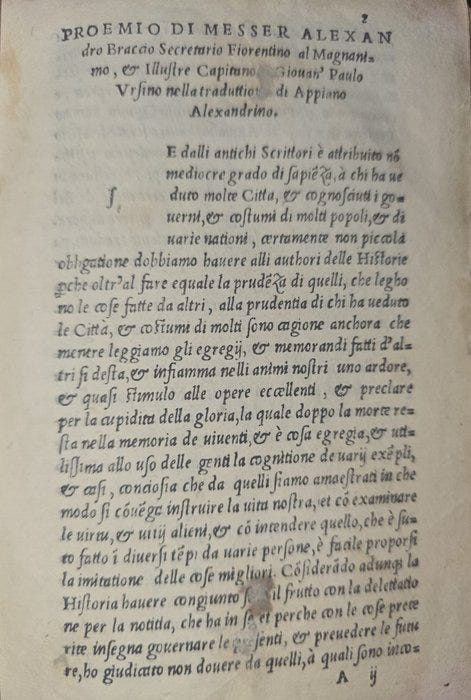 2
PROEMIO DI MESSER ALEXAN
dro Braccio Secretario Fiorentino al Magnani⸗
mo, & Illustre Capitano Giouan' Paulo
Vrsino nella traduttio di Appiano
Alexandrino.
E dalli antichi Scrittori è attribuito nō
mediocre grado di sapiēza, à chi ha ue
duto molte Citta, & cognosciuti i go⸗
uerni, & costumi di molti popoli, & di
uarie nationi, certamente non piccola
ſ
obligatione dobbiamo hauere alli authori delle Historie
ꝑche oltr'al fare equale la prudēza di quelli, che legho
no le cose fatte da altri, alla prudentia di chi ha ueduto
le Città, & costumi di molti sono cagione anchora che
mentre leggiamo gli egregij, & memorandi fatti d'al⸗
tri si desta, & infiamma nelli animi nostri uno ardore,
& quasi stimulo alle opere eccellenti, & preclare
per la cupidita della gloria, la quale doppo la morte re⸗
sta nella memoria de uiuenti, & è cosa egregia, & uti⸗
lissima allo uso delle genti la cognitione de uarij exēpli,
& casi, conciosia che da quelli siamo amaestrati in che
modo si cōuēga instruire la uita nostra, et cō examinare
le uirtu, & uitij alieni, & cō intendere quello, che è su⸗
to fatto ī diuersi tēpi da uarie persone, è facile proporsi
la imitatione delle cose migliori. Cōsiderādo adunqȝ la
Historia hauere congiunto il frutto con la delettatio
ne per la notitia, che ha in se et perche con le cose prete
rite insegna gouernare le senti, & preuedere le futu
re, ho giudicato non douere da quelli, à quali sono inco⸗
A ij